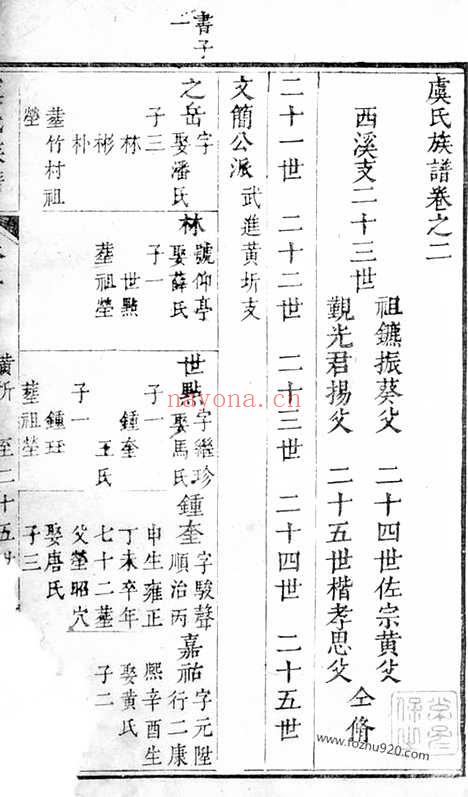 書子
二
虞氏族譜卷之二
西溪支二十三世
祖鑣振葵父
二十四世佐宗黃父
覲光君揚父
二十五世楷孝思父
仝脩
二十一世 二十二世 二十三世 二十四世 二十五世
文簡公派 武進黃圻支
之岳
字
娶潘氏
子三
林
彬
朴
塟竹村祖
塋
林
號仰亭
娶薛氏
子一
世點
塟祖塋
世點
字繼珍
娶馬氏
子一
鍾奎
王氏
子一
鍾
塟祖塋
鍾奎
字駿聲
順治丙
申生雍正
丁未卒年
七十二塟
父塋昭穴
娶唐氏
子三
嘉祐
字元陞
行二康
熙辛酉生
娶黃氏
子二
黃圻 至二十五
nayona.cn
www.fozhu920.com